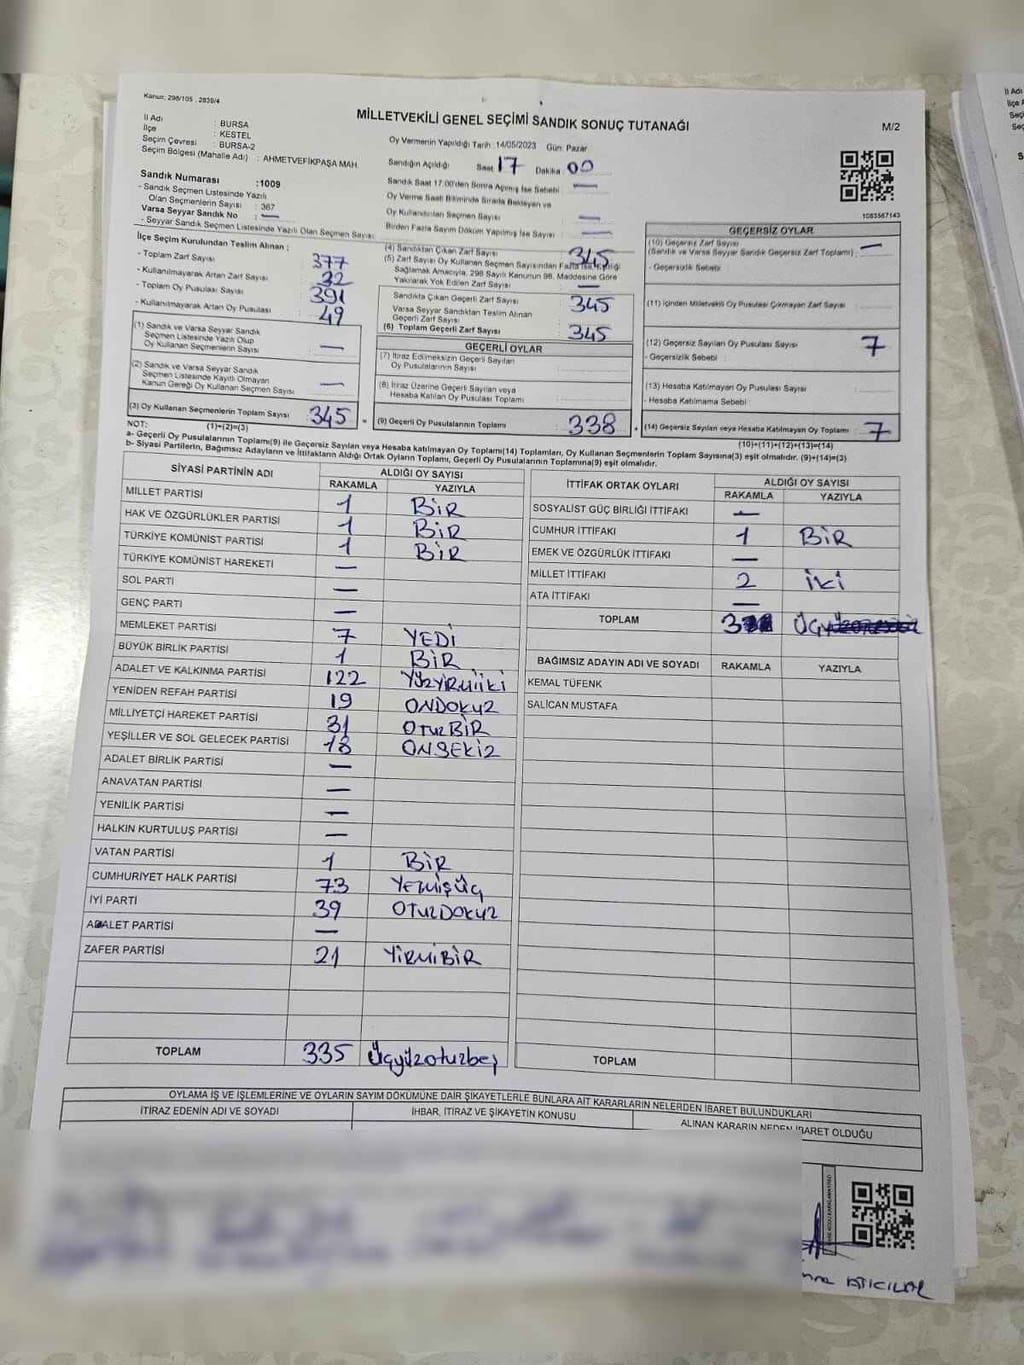 Kanun: 298/105 , 2839/4
MİLLETVEKİLİ GENEL SEÇİMİ SANDIK SONUÇ TUTANAĞI
M/2
İl Adı : BURSA
İlçe : KESTEL
Seçim Çevresi : BURSA-2
Seçim Bölgesi (Mahalle Adı) : AHMETVEFİKPAŞA MAH.
Sandık Numarası :1009
- Sandık Seçmen Listesinde Yazılı
Olan Seçmenlerin Sayısı : 367
Varsa Seyyar Sandık No : —
- Seyyar Sandık Seçmen Listesinde Yazılı Olan Seçmen Sayısı
Oy Vermenin Yapıldığı Tarih :14/05/2023 Gün: Pazar
Sandığın Açıldığı Saat 17 Dakika 00
Sandık Saat 17.00'den Sonra Açılmış İse Sebebi —
Oy Verme Saati Bitiminde Sırada Bekleyen ve
Oy Kullandırılan Seçmen Sayısı —
Birden Fazla Sayım Döküm Yapılmış İse Sayısı —
1083567143
İlçe Seçim Kurulundan Teslim Alınan ;
- Toplam Zarf Sayısı 377
- Kullanılmayarak Artan Zarf Sayısı 32
- Toplam Oy Pusulası Sayısı 391
- Kullanılmayarak Artan Oy Pusulası 49
(1) Sandık ve Varsa Seyyar Sandık
Seçmen Listesinde Yazılı Olup
Oy Kullanan Seçmenlerin Sayısı —
(2) Sandık ve Varsa Seyyar Sandık
Seçmen Listesinde Kayıtlı Olmayan
Kanun Gereği Oy Kullanan Seçmen Sayısı —
(3) Oy Kullanan Seçmenlerin Toplam Sayısı 345
(1)+(2)=(3)
(4) Sandıktan Çıkan Zarf Sayısı 345
(5) Zarf Sayısı Oy Kullanan Seçmen Sayısından Fazla İse, Eşitliği
Sağlamak Amacıyla, 298 Sayılı Kanunun 98. Maddesine Göre
Yakılarak Yok Edilen Zarf Sayısı —
Sandıkta Çıkan Geçerli Zarf Sayısı 345
Varsa Seyyar Sandıktan Teslim Alınan
Geçerli Zarf Sayısı
(6) Toplam Geçerli Zarf Sayısı 345
GEÇERLİ OYLAR
(7) İtiraz Edilmeksizin Geçerli Sayılan
Oy Pusulalarının Sayısı
(8) İtiraz Üzerine Geçerli Sayılan veya
Hesaba Katılan Oy Pusulası Toplamı
(9) Geçerli Oy Pusulalarının Toplamı 338
GEÇERSİZ OYLAR
(10) Geçersiz Zarf Sayısı
(Sandık ve Varsa Seyyar Sandık Geçersiz Zarf Toplamı) : —
- Geçersizlik Sebebi
(11) İçinden Milletvekili Oy Pusulası Çıkmayan Zarf Sayısı
(12) Geçersiz Sayılan Oy Pusulası Sayısı 7
- Geçersizlik Sebebi :
(13) Hesaba Katılmayan Oy Pusulası Sayısı
- Hesaba Katılmama Sebebi
(14) Geçersiz Sayılan veya Hesaba Katılmayan Oy Toplamı 7
(10)+(11)+(12)+(13)=(14)
NOT:
a- Geçerli Oy Pusulalarının Toplamı(9) ile Geçersiz Sayılan veya Hesaba katılmayan Oy Toplamı(14) Toplamları, Oy Kullanan Seçmenlerin Toplam Sayısına(3) eşit olmalıdır. (9)+(14)=(3)
b- Siyasi Partilerin, Bağımsız Adayların ve İttifakların Aldığı Ortak Oyların Toplamı, Geçerli Oy Pusulalarının Toplamına(9) eşit olmalıdır.
SİYASİ PARTİNİN ADI ALDIĞI OY SAYISI
RAKAMLA YAZIYLA
MİLLET PARTİSİ 1 BİR
HAK VE ÖZGÜRLÜKLER PARTİSİ 1 BİR
TÜRKİYE KOMÜNİST PARTİSİ 1 BİR
TÜRKİYE KOMÜNİST HAREKETİ —
SOL PARTİ —
GENÇ PARTİ —
MEMLEKET PARTİSİ 7 YEDİ
BÜYÜK BİRLİK PARTİSİ 1 BİR
ADALET VE KALKINMA PARTİSİ 122 YÜZYİRMİİKİ
YENİDEN REFAH PARTİSİ 19 ONDOKUZ
MİLLİYETÇİ HAREKET PARTİSİ 31 OTUZBİR
YEŞİLLER VE SOL GELECEK PARTİSİ 18 ONSEKİZ
ADALET BİRLİK PARTİSİ —
ANAVATAN PARTİSİ —
YENİLİK PARTİSİ —
HALKIN KURTULUŞ PARTİSİ —
VATAN PARTİSİ 1 BİR
CUMHURİYET HALK PARTİSİ 73 YEMİŞÜÇ
İYİ PARTİ 39 OTUZDOKUZ
ADALET PARTİSİ —
ZAFER PARTİSİ 21 YİRMİBİR
TOPLAM 335 üçyüzotuzbeş
İTTİFAK ORTAK OYLARI ALDIĞI OY SAYISI
RAKAMLA YAZIYLA
SOSYALİST GÜÇ BİRLİĞİ İTTİFAKI —
CUMHUR İTTİFAKI 1 BİR
EMEK VE ÖZGÜRLÜK İTTİFAKI —
MİLLET İTTİFAKI 2 İKİ
ATA İTTİFAKI —
TOPLAM 3 ÜÇ
BAĞIMSIZ ADAYIN ADI VE SOYADI RAKAMLA YAZIYLA
KEMAL TÜFENK
SALİCAN MUSTAFA
TOPLAM
OYLAMA İŞ VE İŞLEMLERİNE VE OYLARIN SAYIM DÖKÜMÜNE DAİR ŞİKAYETLERLE BUNLARA AİT KARARLARIN NELERDEN İBARET BULUNDUKLARI
İTİRAZ EDENİN ADI VE SOYADI İHBAR, İTİRAZ VE ŞİKAYETİN KONUSU ALINAN KARARIN NEDEN İBARET OLDUĞU